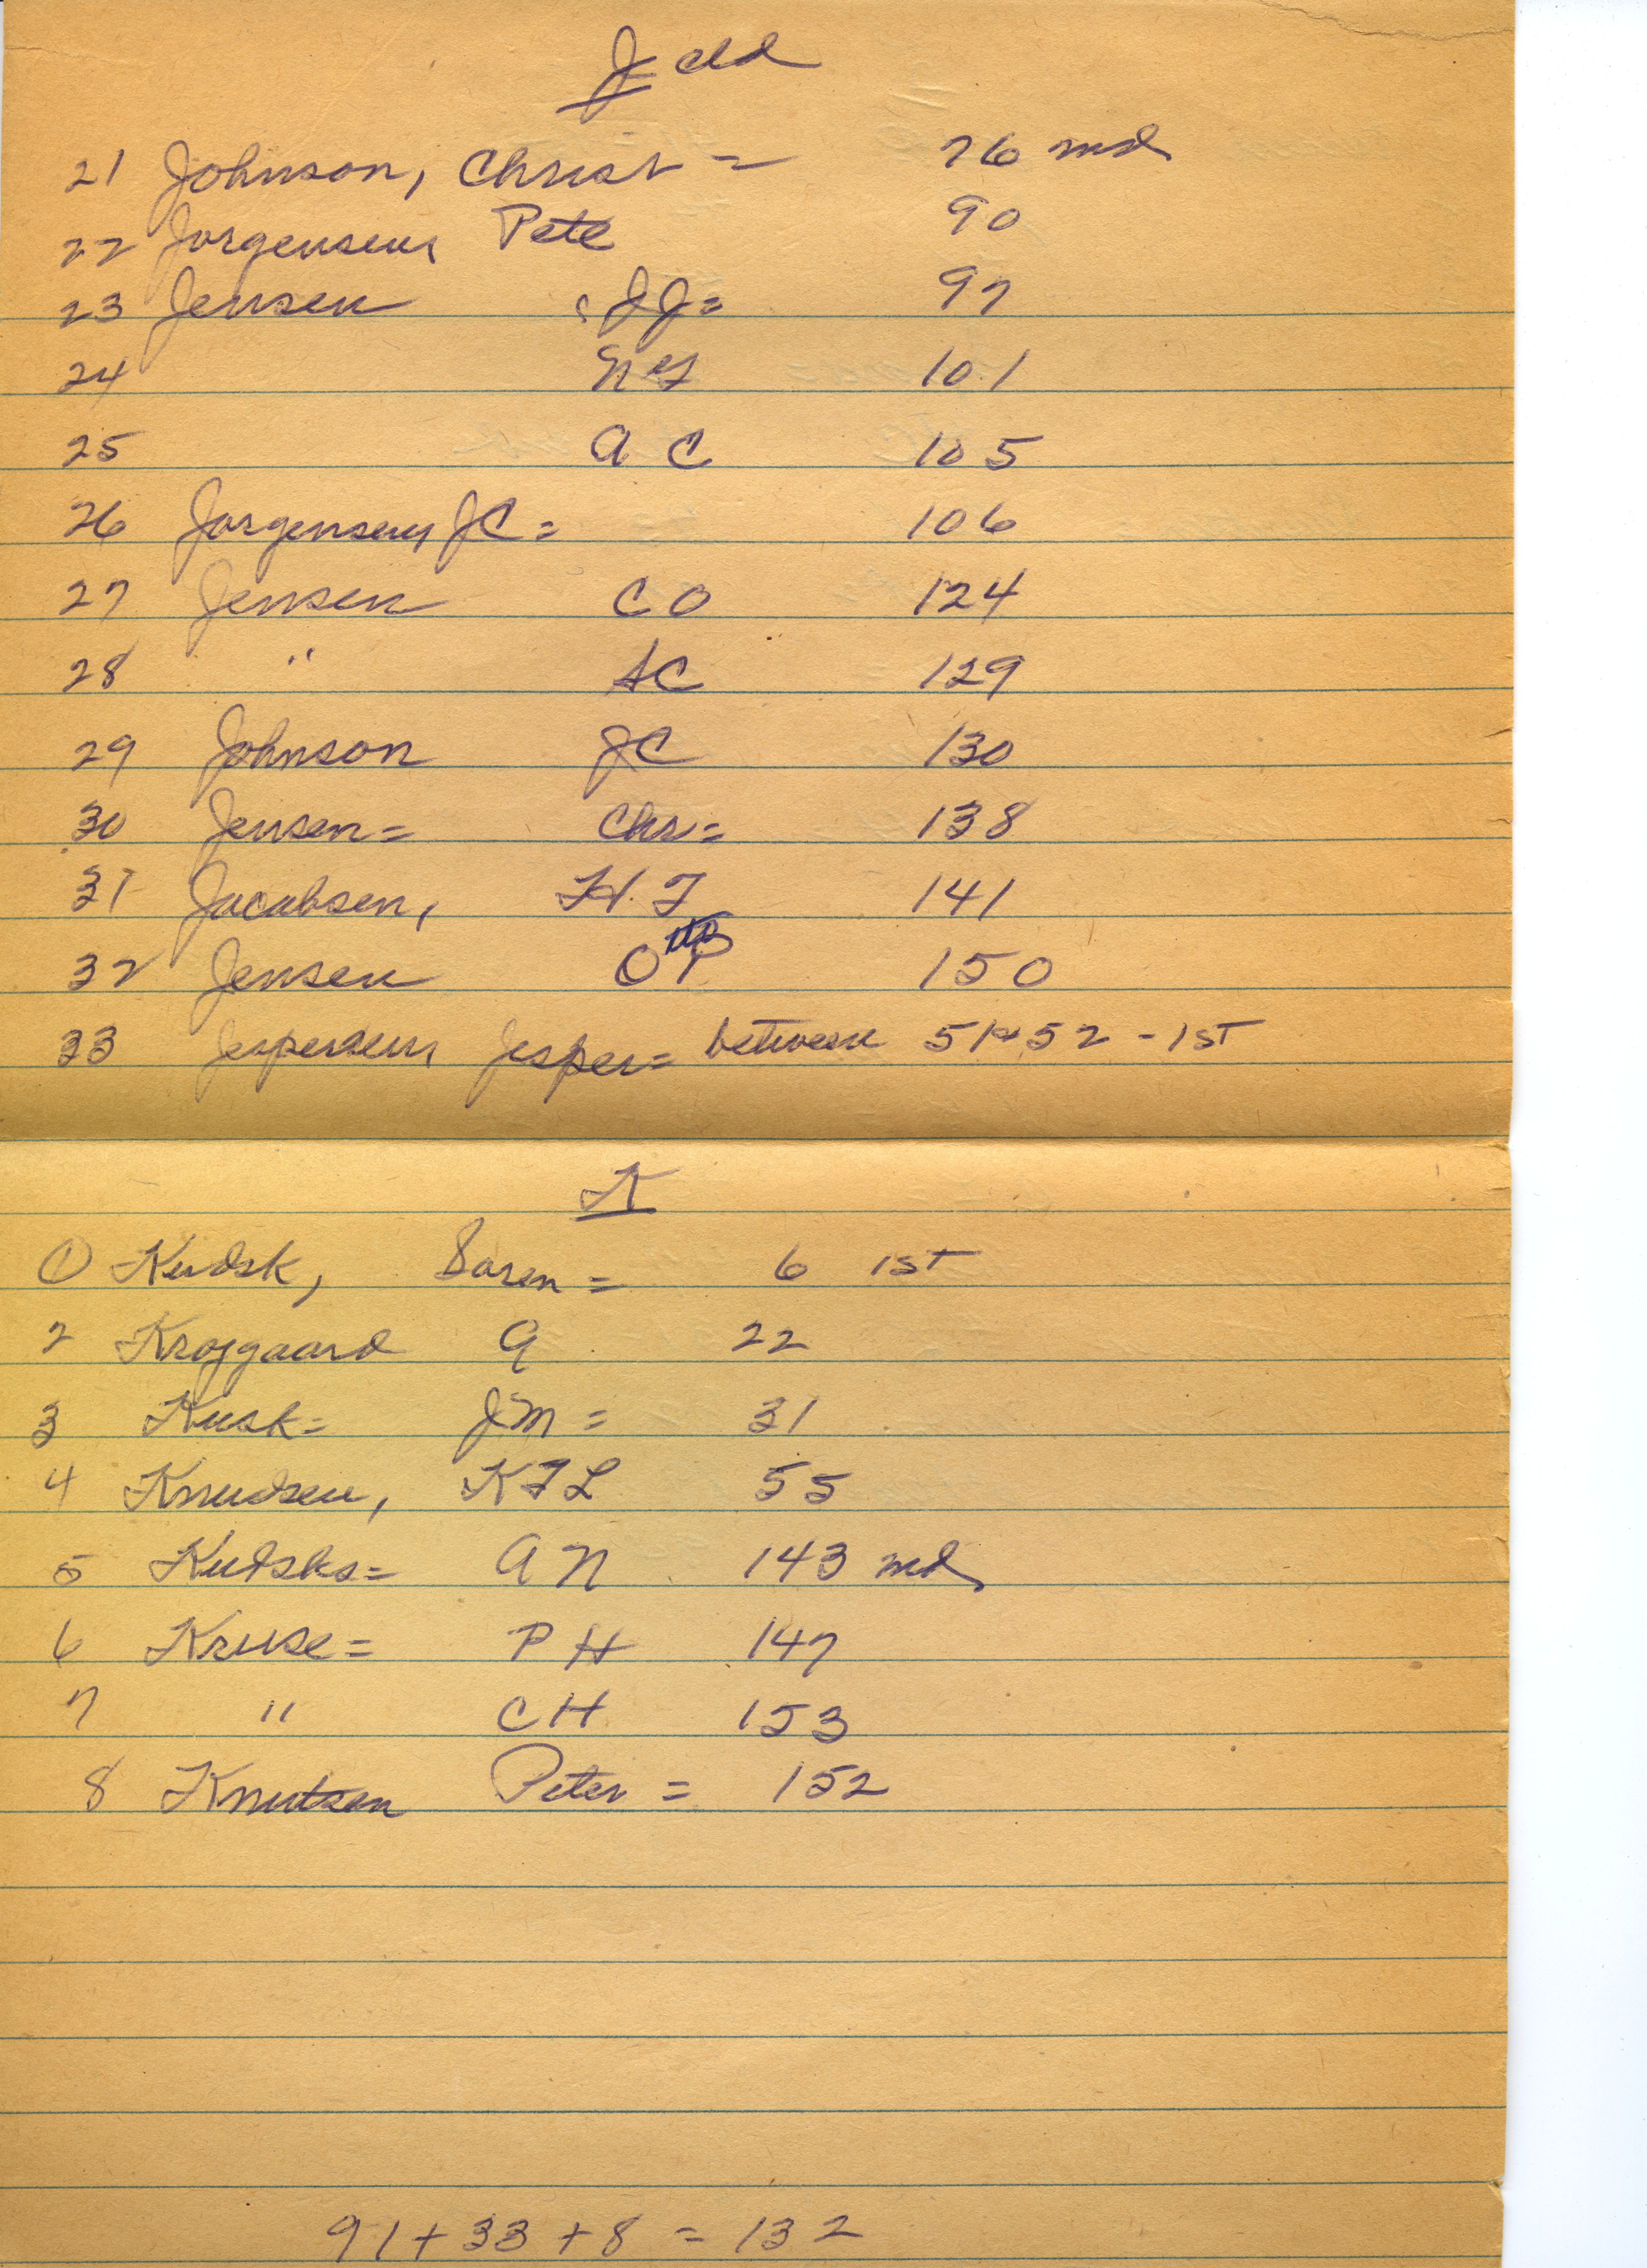 J cld
21 Johnson, Christ = 76 md
22 Jorgensen, Pete 90
23 Jensen , JJ = 97
24 101
25 A C 105
26 Jorgensen, JC = 106
27 Jensen C O 124
28 " AC 129
29 Johnson JC 130
30 Jensen = Chr = 138
31 Jacobsen, H. F 141
32 Jensen Otto P 150
33 Jespersen, Jesper = between 51 & 52 - 1st
K
1 Kudsk, Soren = 6 1st
2 Krojgaard A 22
3 Kusk = JM = 31
4 Knudsen, KFL 55
5 Kudsks = A N 143 md
6 Kruse = P H 147
7 " C H 153
8 Knutsen Peter = 152
91 + 33 + 8 = 132